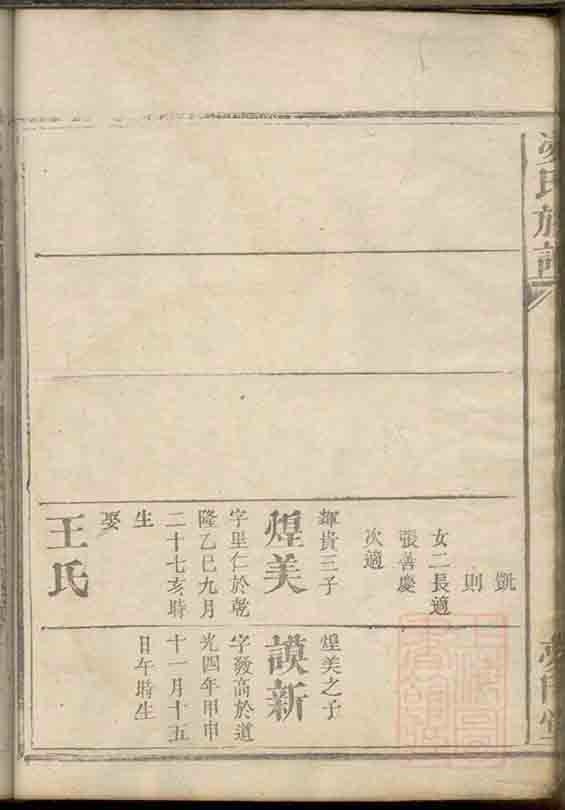 凱
則
女二長適
張善慶
次適
輝貴三子
煌美
字里仁於乾
隆乙巳九月
二十七亥時
生
娶
王氏
煌美之子
謨新
字發高於道
光四年甲申
十一月十五
日午時生